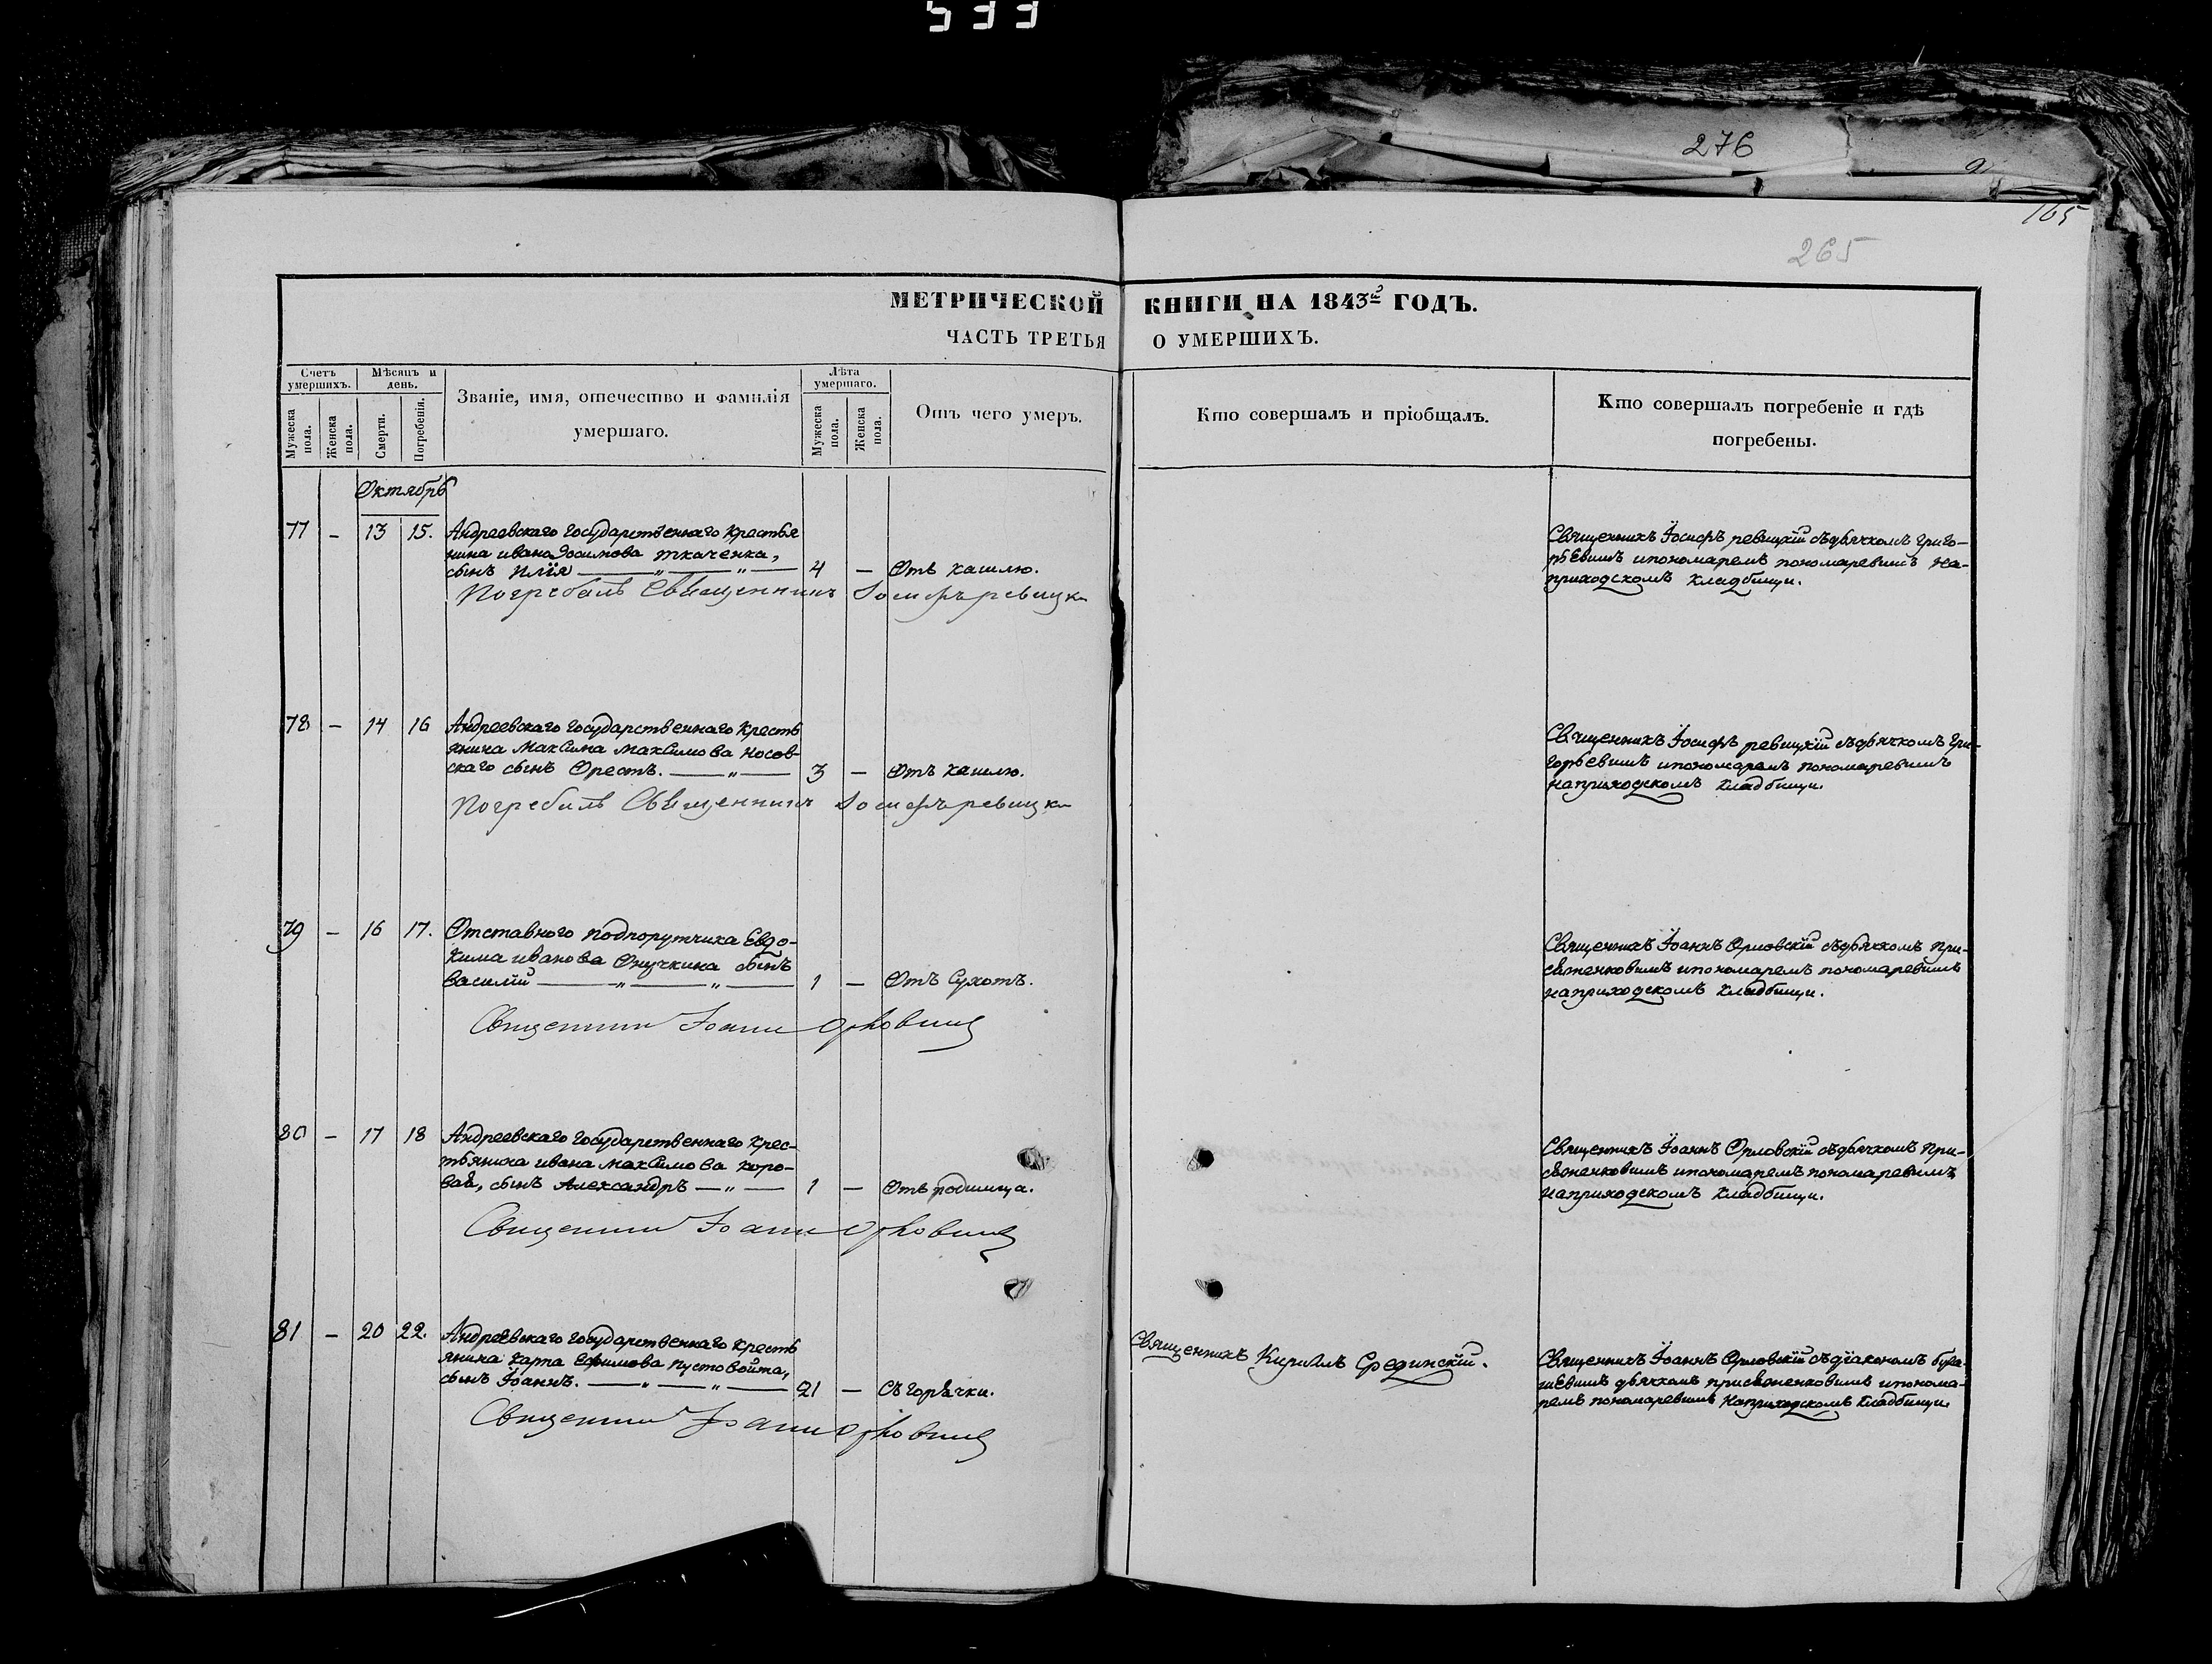 533
276
165
265
МЕТРИЧЕСКОЙ КНИГИ НА 1843й ГОДЪ.
ЧАСТЬ ТРЕТЬЯ О УМЕРШИХЪ.
Счетъ умершихъ.
Мужеска пола.
Женска пола.
Мѣсяцъ и день.
Смерти.
Погребенія.
Званіе, имя, отечество и фамилія
умершаго.
Лѣта умершаго.
Мужеска пола.
Женска пола.
Отъ чего умеръ.
Кто совершалъ и пріобщалъ.
Кто совершалъ погребеніе и гдѣ
погребены.
Октябрь
77 – 13 15. Андреевскаго государственнаго крестья
нина Ивана Зосимова Ткаченка,
сынъ Илія — „ — „ — 4 — Отъ кашлю.
Погребалъ Священникъ Іосифъ Ревицк
Священникъ Іосифъ Ревицкій съ дьячкомъ Григо-
рьевимъ и пономаремъ Пономаревимъ на-
приходскомъ кладбищи.
78 – 14 16 Андреевскаго государственнаго кресть
янина Максима Максимова Носов-
скаго сынъ Орестъ. — „ — 3 — Отъ кашлю.
Погребалъ Священникъ Іосифъ Ревицк
Священникъ Іосифъ Ревицкій съ дьячкомъ Гри-
горьевимъ и пономаремъ Пономаревимъ
на приходскомъ кладбищи.
79 – 16 17. Отставного подпоручика Евдо-
кима Иванова сынъ
Василій — „ — „ — 1 — Отъ сухотъ.
Священник Іоанн Орловский
Священникъ Іоаннъ Орловскій съ дьячкомъ При-
сѣженковимъ и пономаремъ Пономаревимъ
на приходскомъ кладбищи.
80 – 17 18 Андреевскаго государственнаго крес-
тьянина Ивана Максимова Коро-
вая, сынъ Александръ — „ — 1 — Отъ родимца.
Священник Іоанн Орловский
Священникъ Іоаннъ Орловскій съ дьячкомъ При-
сѣженковимъ и пономаремъ Пономаревимъ
на приходскомъ кладбищи.
81 – 20 22. Андреевскаго государственнаго кресть
янина Карпа Ефимова Пустовойта,
сынъ Іоаннъ. — „ — „ — 21 — Съ горячки.
Священник Іоанн Орловский
Священникъ Кириллъ Срединскій.
Священникъ Іоаннъ Орловскій съ діакономъ
дьячкомъ Присѣженковимъ и понома-
ремъ Пономаревимъ на приходскомъ кладбищи.